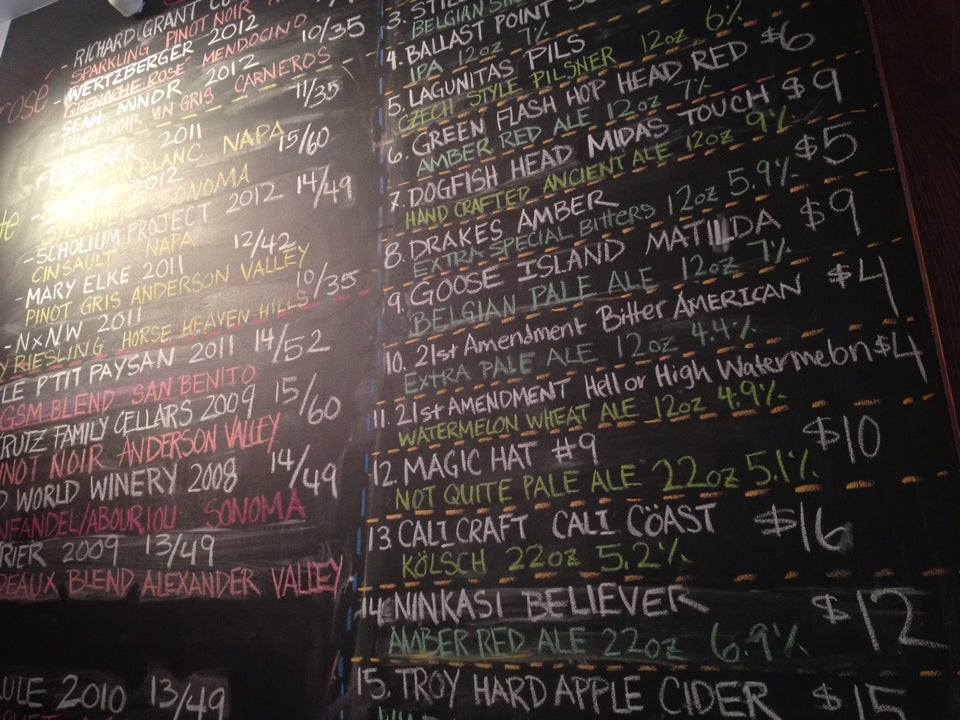 RICHARD GRANT
SPARKLING PINOT NOIR
WERTZBERGER 2012 10/35
GRENACHE ROSÉ MENDOCINO
rosé
SEAN MINOR 2012 11/35
PINOT NOIR VIN GRIS CARNEROS
2011 15/60
BLANC NAPA
2012 14/49
SONOMA
-SCHOLIUM PROJECT 2012
CINSAULT NAPA 12/42
-MARY ELKE 2011
PINOT GRIS ANDERSON VALLEY
-NxNW 2011 10/35
RIESLING HORSE HEAVEN HILLS
LE P'TIT PAYSAN 2011 14/52
GSM BLEND SAN BENITO
RUTZ FAMILY CELLARS 2009 15/60
NOT NOIR ANDERSON VALLEY
WORLD WINERY 2008 14/49
NFANDEL/ABOURIOU SONOMA
RIER 2009 13/49
DEAUX BLEND ALEXANDER VALLEY
2010 13/49
3.
BELGIAN
4. BALLAST POINT
IPA 12oz 7%
5. LAGUNITAS PILS 6%
CZECH STYLE PILSNER 12oz
6. GREEN FLASH HOP HEAD RED $6
AMBER RED ALE 12oz 7%
7. DOGFISH HEAD MIDAS TOUCH $9
HAND CRAFTED ANCIENT ALE 12oz 9%
8. DRAKES AMBER $5
EXTRA SPECIAL BITTERS 12oz 5.9%
9. GOOSE ISLAND MATILDA $9
BELGIAN PALE ALE 12oz 7%
10. 21st Amendment Bitter AMERICAN $4
EXTRA PALE ALE 12oz 4.4%
11. 21st AMENDMENT Hell or High Watermelon $4
WATERMELON WHEAT ALE 12oz 4.9%
12. MAGIC HAT #9 $10
NOT QUITE PALE ALE 22oz 5.1%
13. CALICRAFT CALI CÖAST $16
KÖLSCH 22oz 5.2%
14. NINKASI BELIEVER $12
AMBER RED ALE 22oz 6.9%
15. TROY HARD APPLE CIDER $15